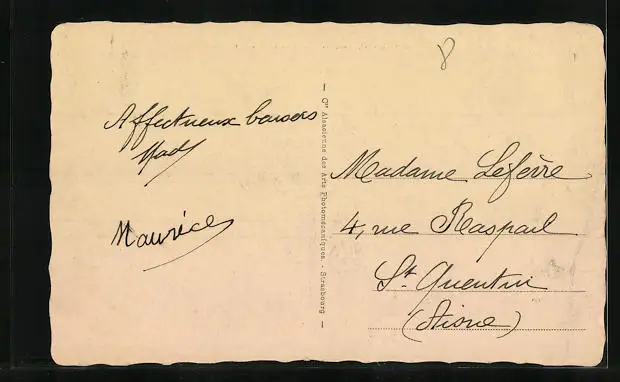 Affectueux baisers
Mad
Maurice
— Cie Alsacienne des Arts Photomécaniques. - Strasbourg —
8
Madame Lefèvre
4, rue Raspail
St Quentin
(Aisne)